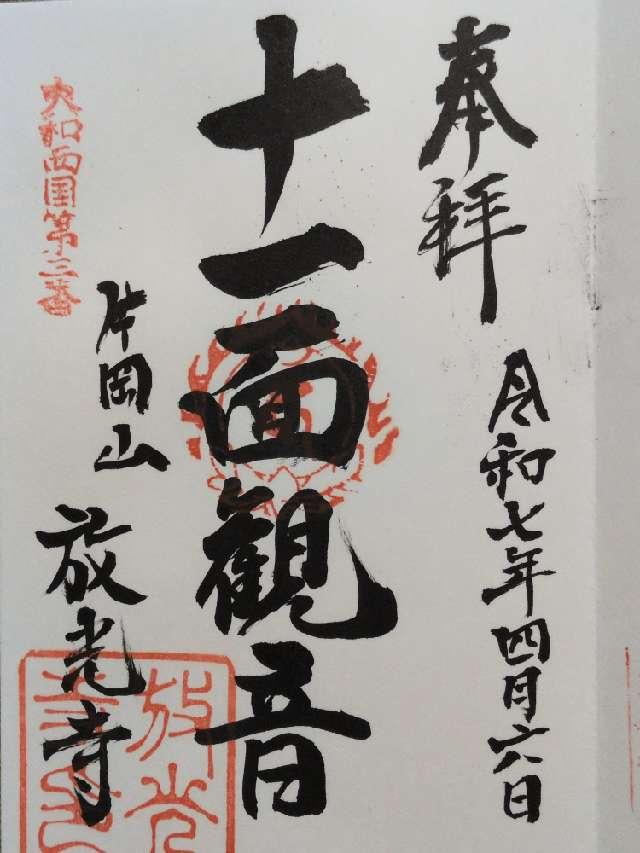 奉拝
令和七年四月六日
十一面観音
大和西国第三番
片岡山
放光寺
放光